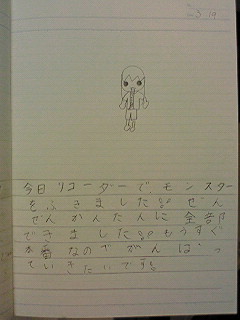 3.14
今日リコーダーでモンスター
をふきました。ぜん
ぜんかんたんに全部
できました。もうすぐ
本番なのでがんばっ
ていきたいです。